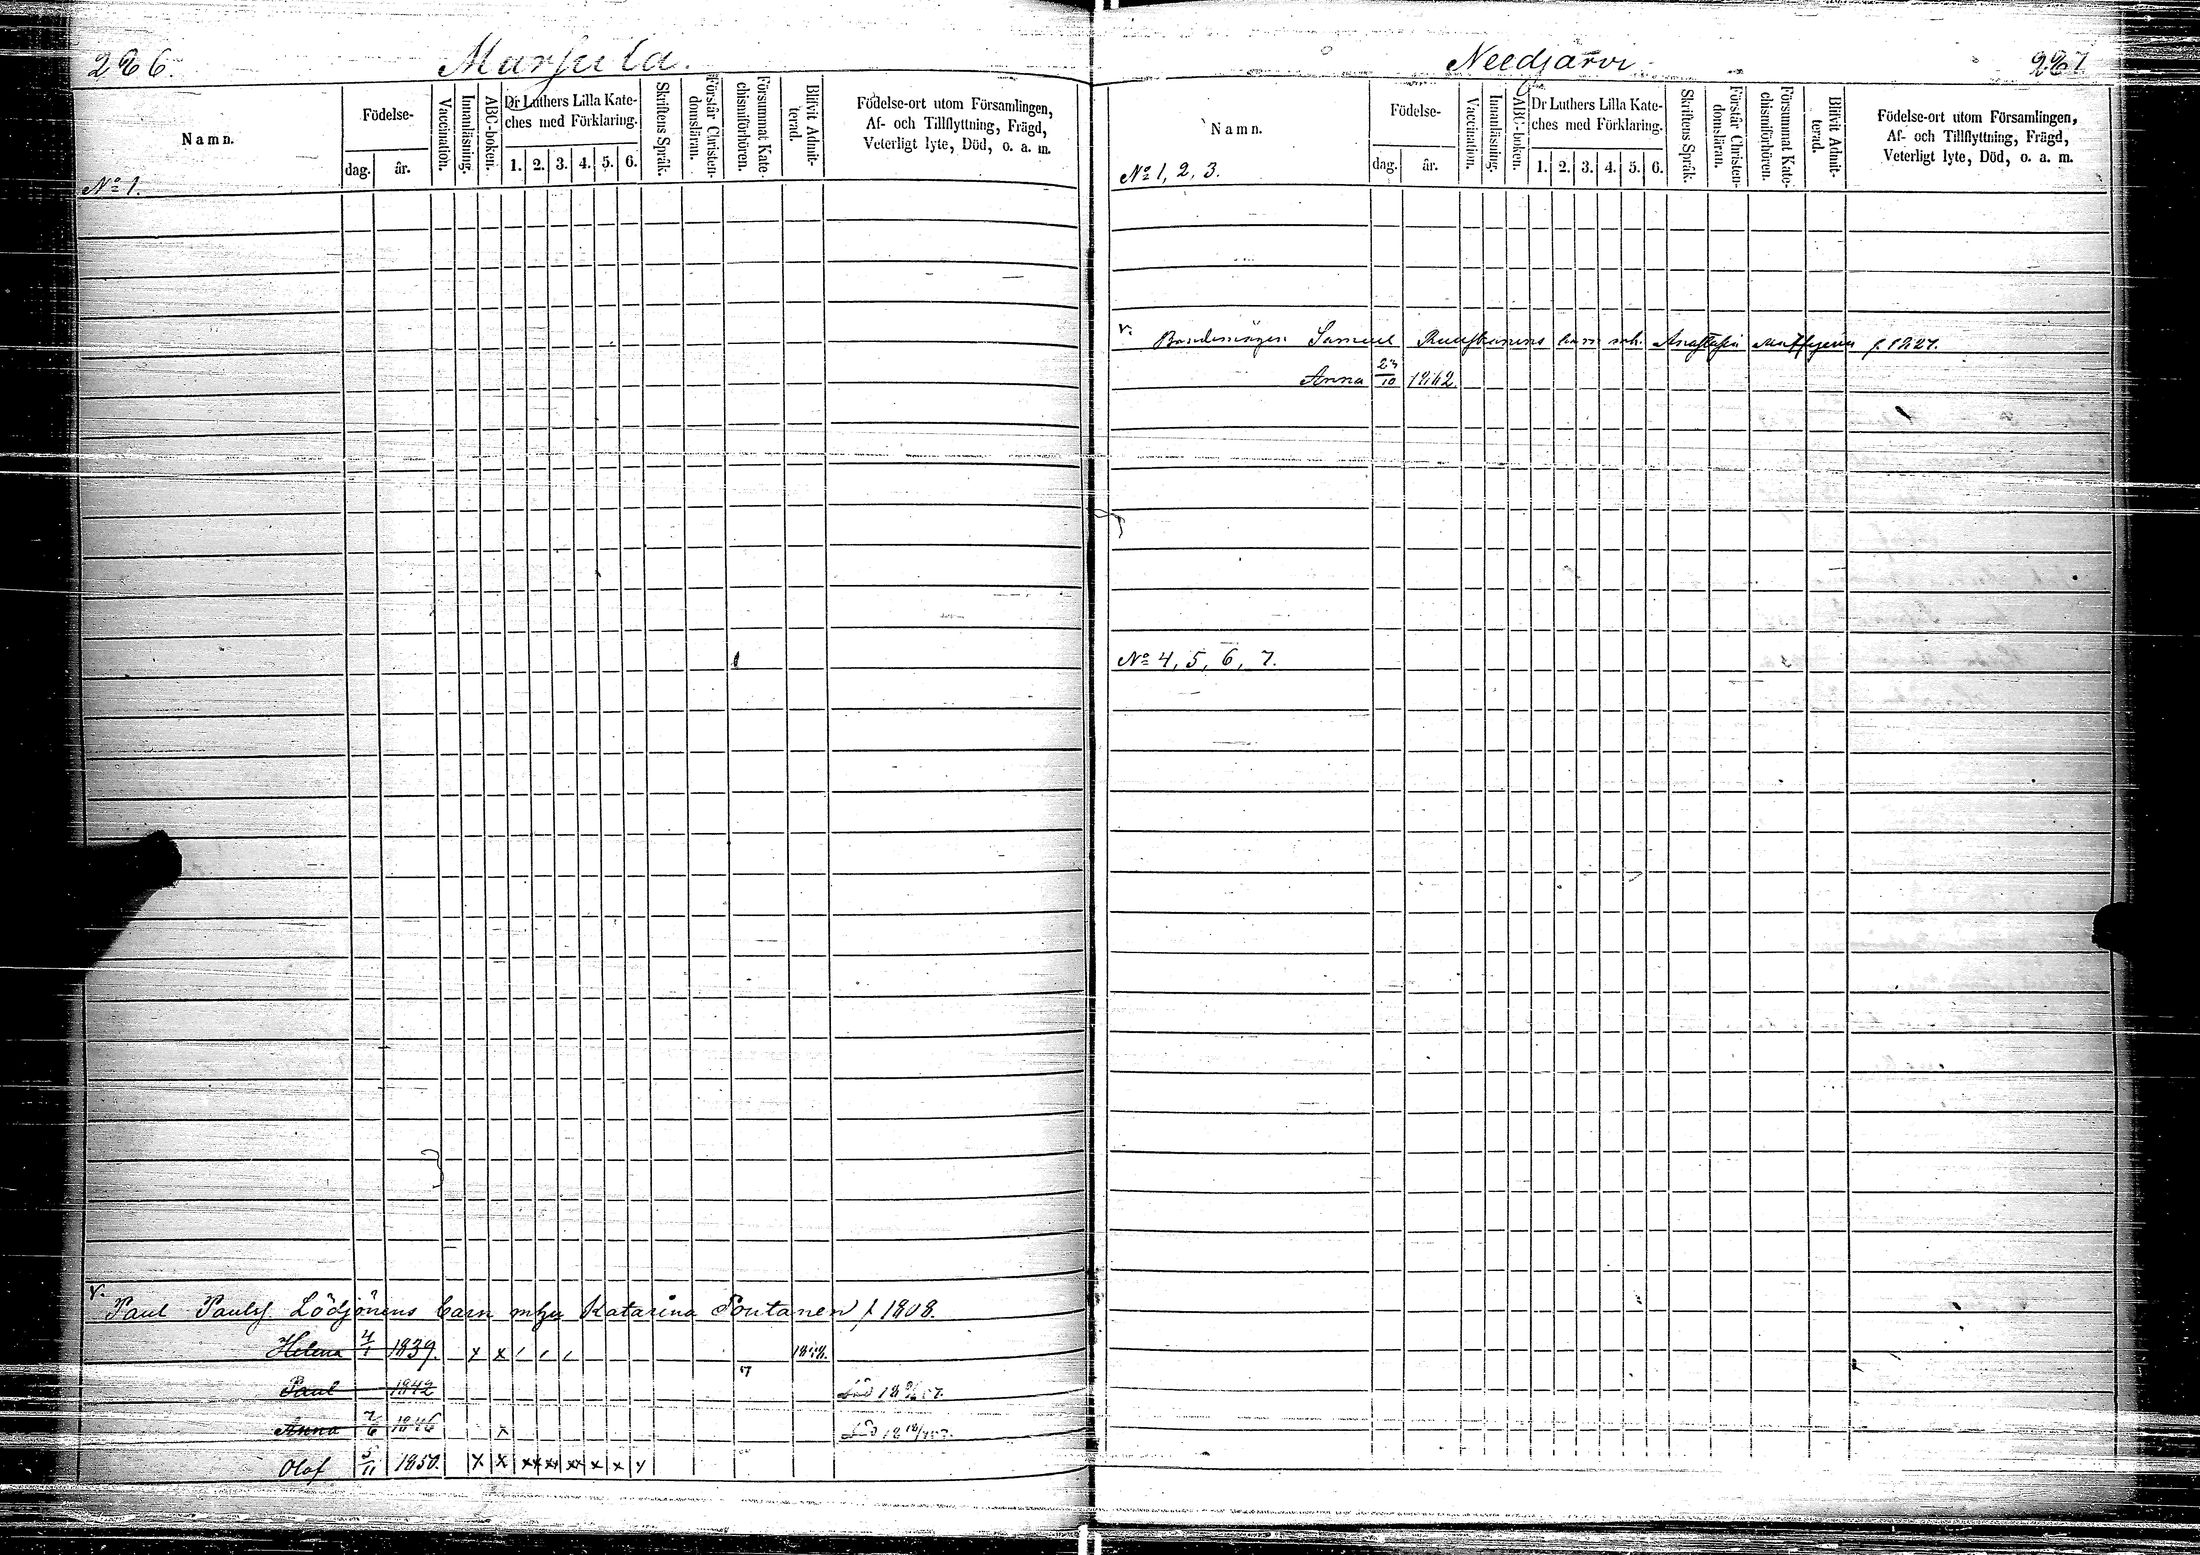 226.
Marsula.
Namn.
Födelse-
dag.
år.
Vaccination.
Innanläsning.
ABC-boken.
Dr Luthers Lilla Kate-
ches med Förklaring.
1. 2. 3. 4. 5. 6.
Skriftens Språk.
Förstår Christen-
domsläran.
Försummat Kate-
chismiförhören.
Blifvit Admit-
terad.
Födelse-ort utom Församlingen,
Af- och Tillflyttning, Frägd,
Veterligt lyte, Död, o. a. m.
No 1.
v. Paul Paulsf. Lödjönens barn Katarina Pontanen f 1808.
Helena 4/1 1839. x x
Paul 1842
Anna 7/6 1846 x
Olof 5/11 1850. x x xx xx xx x x x
Needjärvi
227
Namn.
Födelse-
dag.
år.
Vaccination.
Innanläsning.
ABC-boken.
Dr Luthers Lilla Kate-
ches med Förklaring.
1. 2. 3. 4. 5. 6.
Skriftens Språk.
Förstår Christen-
domsläran.
Försummat Kate-
chismiförhören.
Blifvit Admit-
terad.
Födelse-ort utom Församlingen,
Af- och Tillflyttning, Frägd,
Veterligt lyte, Död, o. a. m.
No 1, 2, 3.
v. Bondemågen Samuel barn f. 1827.
Anna 23/10 1862
No 4, 5, 6, 7.